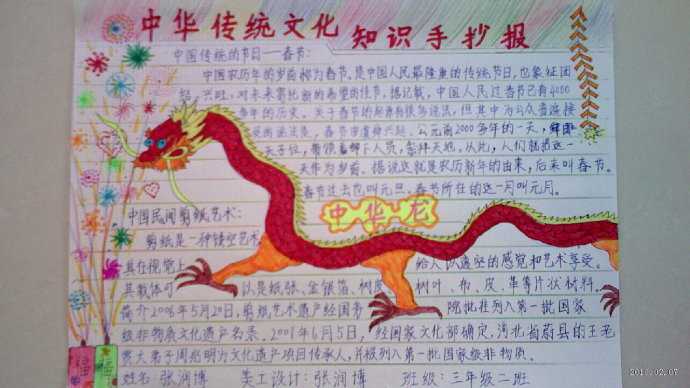 中华传统文化知识手抄报
中国传统的节日——春节：
中国农历年的岁首称为春节,是中国人民最隆重的传统节日,也象征团
结、兴旺、对未来寄托新的希望的佳节。据记载,中国人民过春节已有4000
多年的历史。关于春节的起源有很多说法,但其中为公众普遍接
受的说法是,春节由虞舜兴起。公元前2000多年的一天,舜即
天子位,带领着部下人员,祭拜天地。从此,人们就把这一
天作为岁首。据说这就是农历新年的由来,后来叫春节。
春节过去也叫元旦。春节所在的这一月叫元月。
中华龙
中国民间剪纸艺术：
剪纸是一种镂空艺术
其在视觉上
给人以透空的感觉和艺术享受。
其载体可以是纸张、金银箔、树皮 树叶、布、皮、革等片状材料。
简介2006年5月20日,剪纸艺术遗产经国务院批挂列入第一批国家
级非物质文化遗产名录。2007年6月5日,经国家文化部确定,河北省蔚县的王老
赏大弟子周兆明为文化遗产项目传承人,并被列入第一批国家级非物质。
福
福
姓名：张润博 美工设计：张润博 班级：三年级二班
2013.02.07